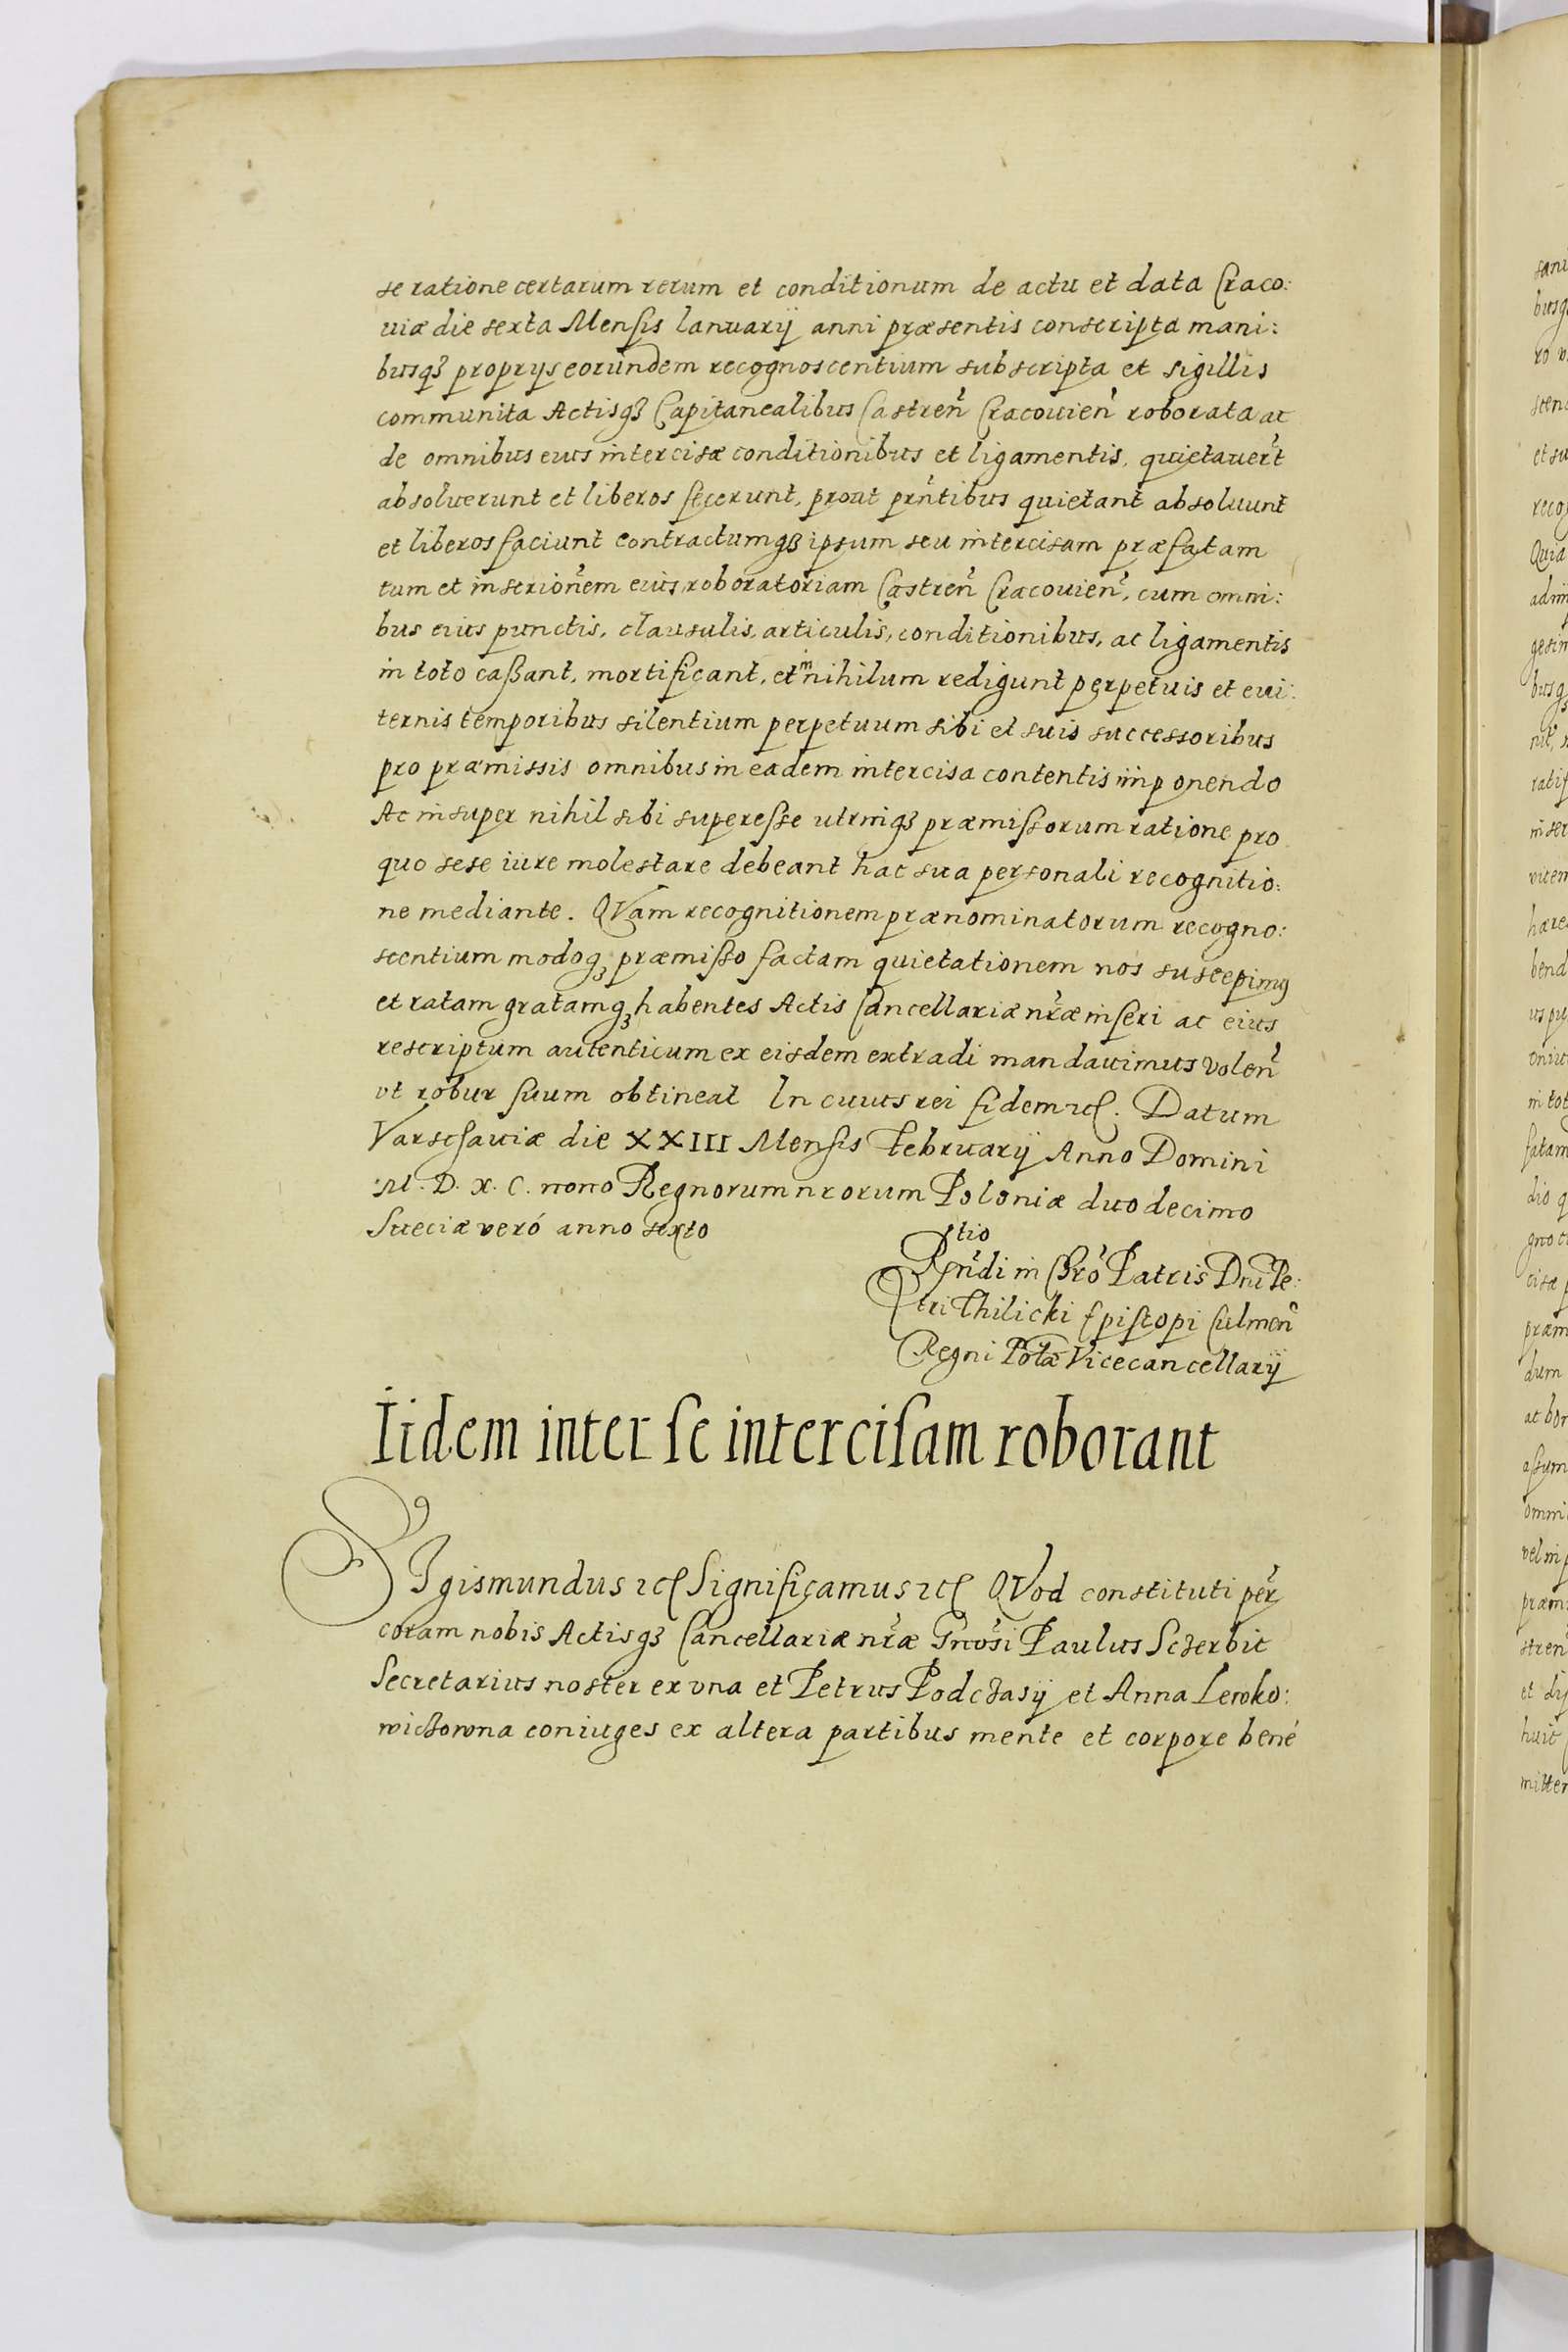 se ratione certarum rerum et conditionum de actu et data Craco:
uiæ die sexta Mensis Ianuarÿ anni præsentis conscripta mani:
busqȝ proprÿs eorundem recognoscentium subscripta et sigillis
communita Actisqȝ Capitanealibus Castreñ Cracouieñ roborata ac
de omnibus eius intercisæ conditionibus et ligamentis, quietauer̃t
absoluerunt et liberos fecerunt, prout prñtibus quietant absoluunt
et liberos faciunt contractumqȝ ipsum seu intercisam præfatam
tum et inscrioñem eius roboratoriam Castreñ Cracouieñ, cum omni:
bus eius punctis, clausulis, articulis, conditionibus, ac ligamentis
in toto caßant, mortificant, et in nihilum redigunt perpetuis et eui:
ternis temporibus silentium perpetuum sibi et suis successoribus
pro præmissis omnibus in eadem intercisa contentis imponendo
Ac insuper nihil sibi superesse utrinqȝ præmissorum ratione pro
quo sese iure molestare debeant hac sua personali recognitio:
ne mediante. QVam recognitionem prænominatorum recogno:
scentium modoqȝ præmisso factam quietationem nos suscepimꝰ
et ratam gratamqȝ habentes Actis Cancellariæ nr̃æ inseri ac eius
rescriptum autenticum ex eisdem extradi mandauimus volen̄
vt robur suum obtineat In cuius rei fidem ꝛc. Datum
Varschauiæ die XXIII Mensis Februarÿ Anno Domini
M. D. X. C. nono Regnorum nrorum Poloniæ duodecimo
Sueciæ veró anno sexto
Rtio
Rñdi in Chro Patris Dni Pe:
tri Thilicki Episcopi Culmeñ
Regni Polæ Vicecancellarÿ
Iidem inter se intercisam roborant
SIgismundus ꝛc Significamus ꝛc QVod constituti per̃
coram nobis Actisqȝ Cancellariæ nr̃æ Gnosi Paulus Sczerbic
Secretarius noster ex vna et Petrus Podczasÿ et Anna Lewko:
wiczowna coniuges ex altera partibus mente et corpore bené